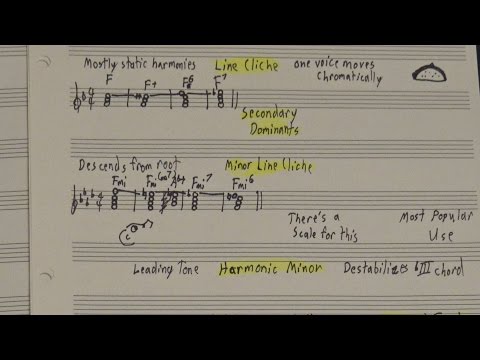 Mostly static harmonies Line Cliche one voice moves
Chromatically
F F+ F6 F7
Secondary
Dominants
Descends from root Minor Line Cliche
Fmi Fmi(ma7) Ab+ Fmi7 Fmi6
There's a Most Popular
Scale for this Use
Leading Tone Harmonic Minor Destabilizes bIII chord